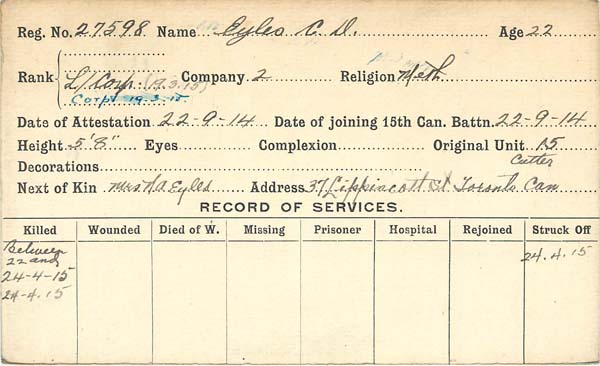 Reg. No. 27598 Name Eyles C. D. Age 22
Rank L/Corp. (19.3.15) Company 2 Religion Meth
Corpl 19.3.15.
Date of Attestation 22-9-14 Date of joining 15th Can. Battn. 22-9-14
Height 5'8" Eyes Complexion Original Unit 15
Decorations Cutter
Next of Kin Mrs N A Eyles Address 37 Lippincott St Toronto Can
RECORD OF SERVICES.
Killed Wounded Died of W. Missing Prisoner Hospital Rejoined Struck Off
Between 24.4.15
22 and
24-4-15
24-4.15